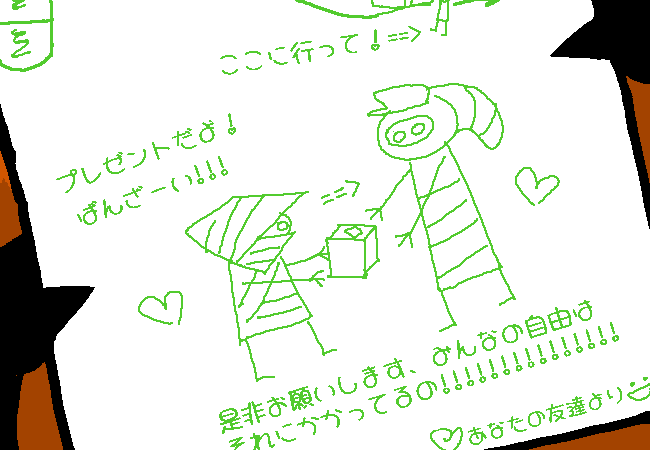 ここに行って！==>
プレゼントだよ！
ばんざーい!!!
==>
是非お願いします、みんなの自由は
それにかかってるの!!!!!!!!!!!!!!!
♡あなたの友達より